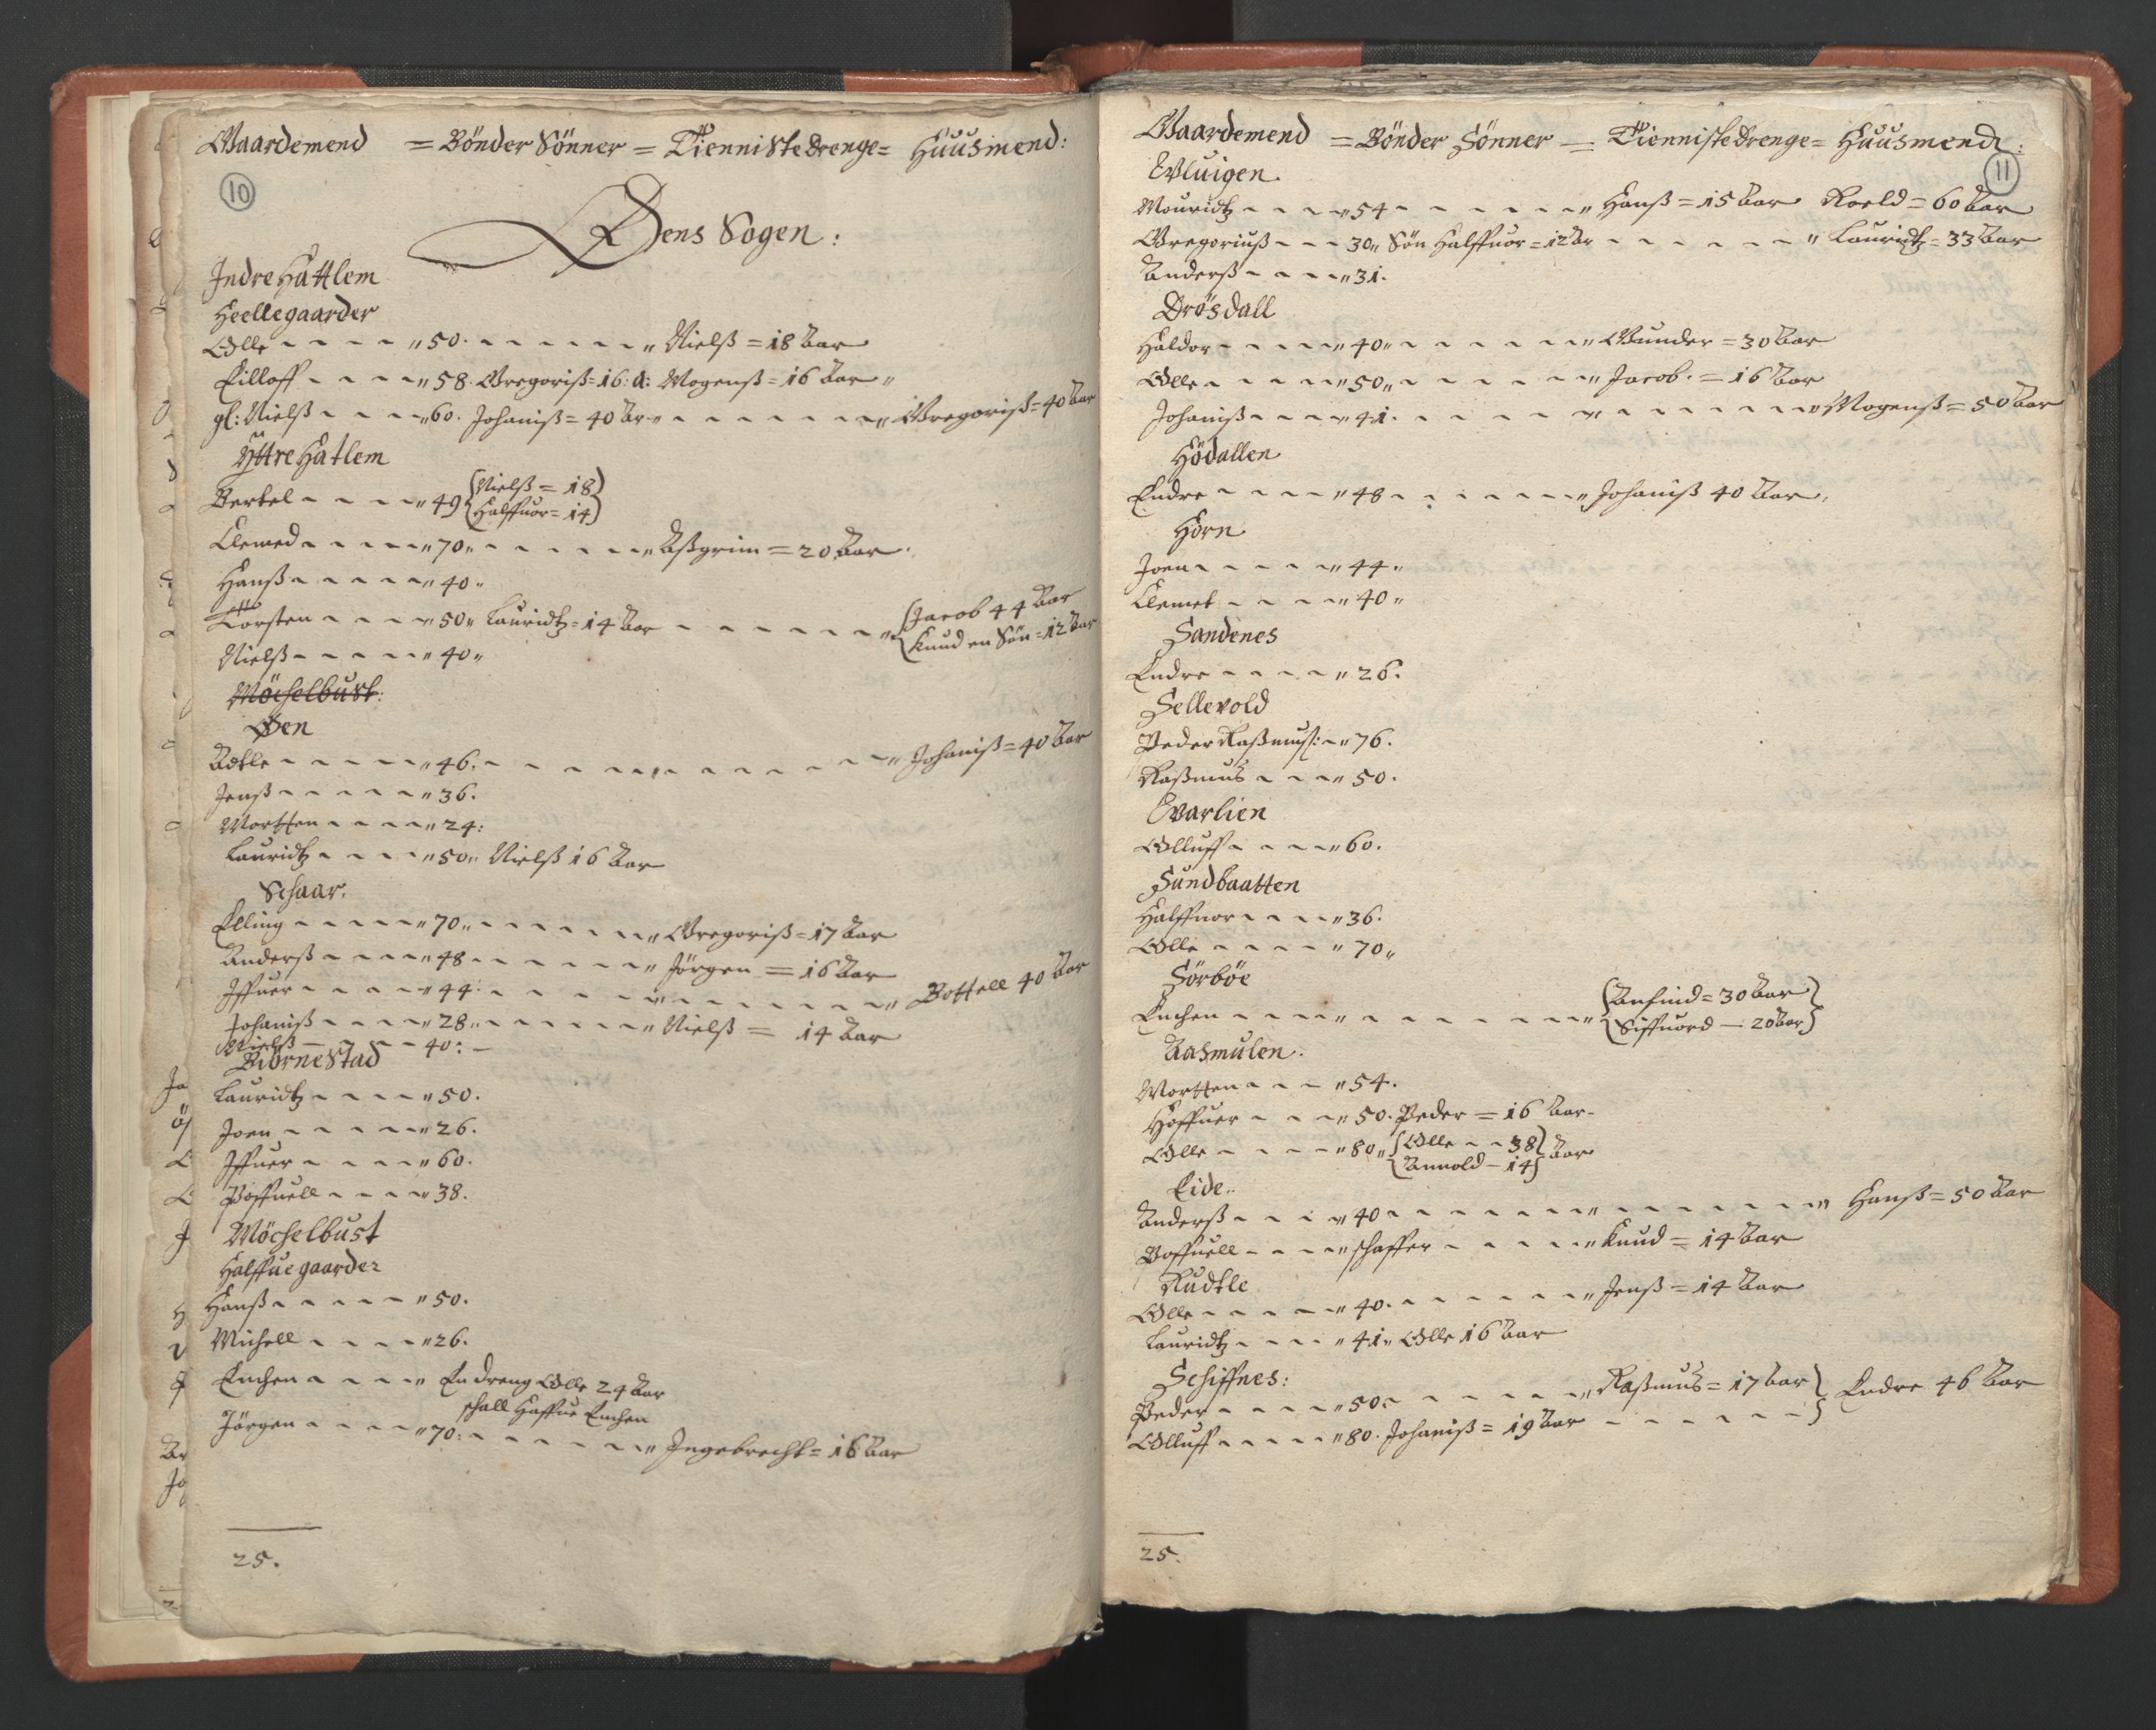 Gaardemend = Bönder Sönner = Tienniste Drenge = Huusmend:
10
Øens Sogen:
Indre Hattlem
Heellegaarder
Olle - - - - " 50. - - - - - - " Nielß = 18 Aar
Eilloff - - - - " 58. Gregoriß = 16: A: Mogenß = 16 Aar "
gl: Nielß - - - - " 60. Johaniß = 40 Ar - " - - - - - - - " Gregoriß = 40 Aar
Yttre Hatlem
Bertel - - - - " 49 { Nielß = 18 }
{ Halffuor = 14 }
Clemed - - - - " 70 " - - - - - - " Aßgrim = 20 Aar
Hanß - - - - - " 40 "
Torsten - - - - " 50 " Lauridtz = 14 Aar - - - - - - - " { Jacob 44 Aar
{ Knud en Sön = 12 Aar
Nielß - - - - - " 40 "
Möchelbust:
Øen
Adtle - - - - - " 46: - - - - - - - - - - - " Johaniß = 40 Aar
Jenß - - - - - " 36.
Mortten - - - - " 24:
Lauridtz - - - - " 50 " Nielß 16 Aar
Schaar.
Elling - - - - - " 70 " - - - - - - " Gregoriß = 17 Aar
Anderß - - - - " 48 - - - - - - " Jörgen = 16 Aar
Iffuer - - - - " 44. - - - - - - - - - - - " Bottell 40 Aar
Johaniß - - - - " 28 " - - - - - - " Nielß = 14 Aar
Nielß - - - - 40: -
Biörnestad
Lauridtz - - - - " 50.
Joen - - - - - " 26.
Iffuer - - - - " 60.
Poffuell - - - - " 38.
Möchelbust
Halffue gaarder
Hanß - - - - - " 50.
Michell - - - - " 26.
Enchen - - - - " En dreng Olle 24 Aar
schall haffue Enchen
Jörgen - - - - " 70: - - - - - - " Ingebrecht = 16 Aar
25.
Gaardemend = Bönder Sönner = Tienniste Drenge = Huusmend:
11
Evluigen
Mouridtz - - - - " 54 - - - - - - - " Hanß = 15 Aar Roeld = 60 Aar
Gregoriuß - - - 30 " Sön Halffuor = 12 Ar - - - - - - - " Lauridtz = 33 Aar
Anderß - - - - " 31.
Drösdall
Haldor - - - - " 40 " - - - - - - - " Gunder = 30 Aar
Olle - - - - - " 50 " - - - - - - - " Jacob. = 16 Aar
Johaniß - - - - " 41. - - - - - - - - - - - - " Mogenß = 50 Aar
Hödallen
Endre - - - - " 48 - - - - - - - " Johaniß 40 Aar.
Horn
Joen - - - - - " 44 "
Clemet - - - - " 40 "
Sandenes
Endre - - - - " 26.
Sellevold
Peder Raßmuß: - " 76.
Raßmus - - - " 50.
Evarlien
Olluff - - - - " 60.
Sundbaatten
Halffuor - - - - " 36.
Olle - - - - - " 70 "
Sörböe
Enchen - - - - " - - - - - - - " { Anfind = 30 Aar }
{ Siffuord - 20 Aar }
Aasmulen.
Mortten - - - " 54.
Höffuer - - - " 50. Peder = 16 Aar -
Olle - - - - - " 80 " { Olle - - 38 } Aar
{ Annold - 14 }
Eide.
Anderß - - - " 40 - - - - - - - " - - - - - - " Hanß = 50 Aar
Poffuell - - - " schaffer - - - - - " Knud = 14 Aar
Rudtle
Olle - - - - - " 40. - - - - - - - " Jenß = 14 Aar
Lauridtz - - - - " 41 " Olle 16 Aar
Schiffnes:
Peder - - - - - " 50 " - - - - - - - " Raßmus = 17 Aar } Endre 46 Aar
Olluff - - - - - " 80. Johaniß = 19 Aar - - - - - - }
25.